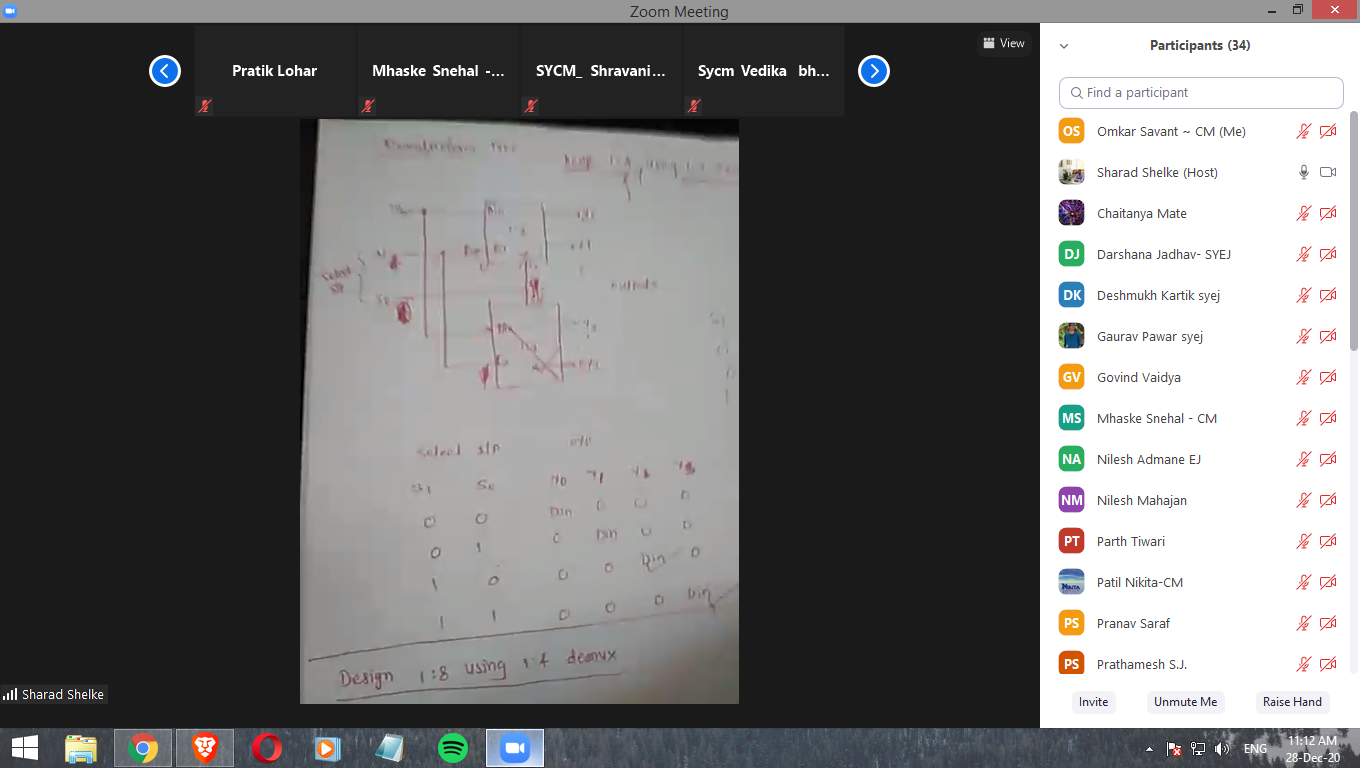 Zoom Meeting
View
Pratik Lohar
Mhaske Snehal -...
SYCM_ Shravani...
Sycm Vedika bh...
Select I/P
S1 S0 Y0 Y1
0 0 Din 0 0 0
0 1 0 Din 0 0
1 0 0 0 Din 0
1 1 0 0 0 Din
Design 1:8 using 1:4 demux
Sharad Shelke
Participants (34)
Find a participant
OS Omkar Savant ~ CM (Me)
Sharad Shelke (Host)
Chaitanya Mate
DJ Darshana Jadhav- SYEJ
DK Deshmukh Kartik syej
Gaurav Pawar syej
GV Govind Vaidya
MS Mhaske Snehal - CM
NA Nilesh Admane EJ
NM Nilesh Mahajan
PT Parth Tiwari
Patil Nikita-CM
PS Pranav Saraf
PS Prathamesh S.J.
Invite
Unmute Me
Raise Hand
ENG
11:12 AM
28-Dec-20